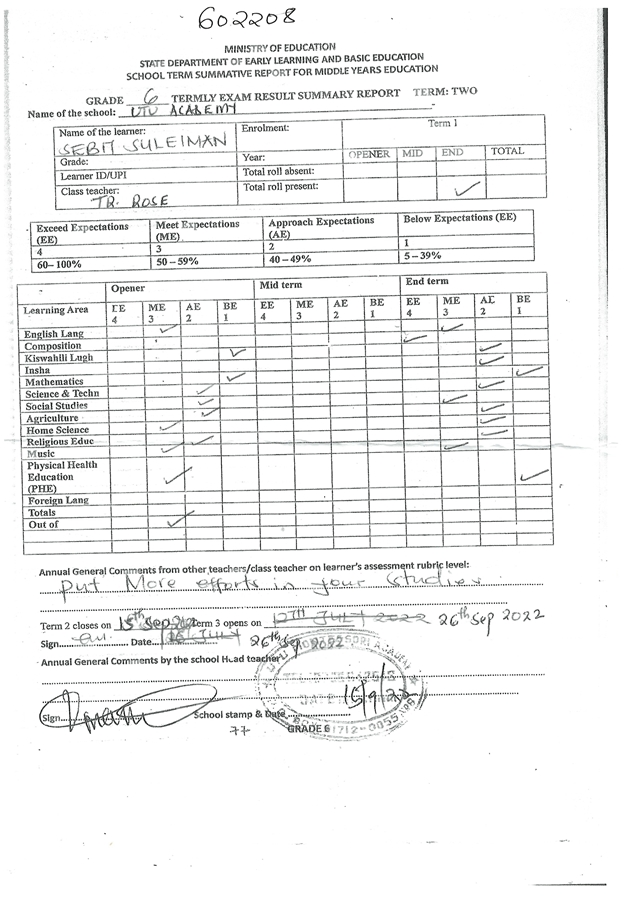 602208
MINISTRY OF EDUCATION
STATE DEPARTMENT OF EARLY LEARNING AND BASIC EDUCATION
SCHOOL TERM SUMMATIVE REPORT FOR MIDDLE YEARS EDUCATION
GRADE 6 TERMLY EXAM RESULT SUMMARY REPORT TERM: TWO
Name of the school: UTU ACADEMY
Name of the learner: Enrolment: Term 1
SEBIT SULEIMAN
Grade: Year: OPENER MID END TOTAL
Learner ID/UPI Total roll absent:
Class teacher: Total roll present: ✓
TR. ROSE
Exceed Expectations (EE) Meet Expectations (ME) Approach Expectations (AE) Below Expectations (EE)
4 3 2 1
60–100% 50–59% 40–49% 5–39%
Opener Mid term End term
Learning Area EE 4 ME 3 AE 2 BE 1 EE 4 ME 3 AE 2 BE 1 EE 4 ME 3 AE 2 BE 1
English Lang
Composition
Kiswahili Lugh
Insha
Mathematics
Science & Techn
Social Studies
Agriculture
Home Science
Religious Educ
Music
Physical Health
Education
(PHE)
Foreign Lang
Totals
Out of
Annual General Comments from other teachers/class teacher on learner's assessment rubric level:
Put More efforts in your studies
Term 2 closes on 15th Sep Term 3 opens on 12TH JULY 2022 26th Sep 2022
Sign Date JULY 26th Sep 2022
Annual General Comments by the school Head teacher
15/9/22
Sign School stamp & Date
77 GRADE 6